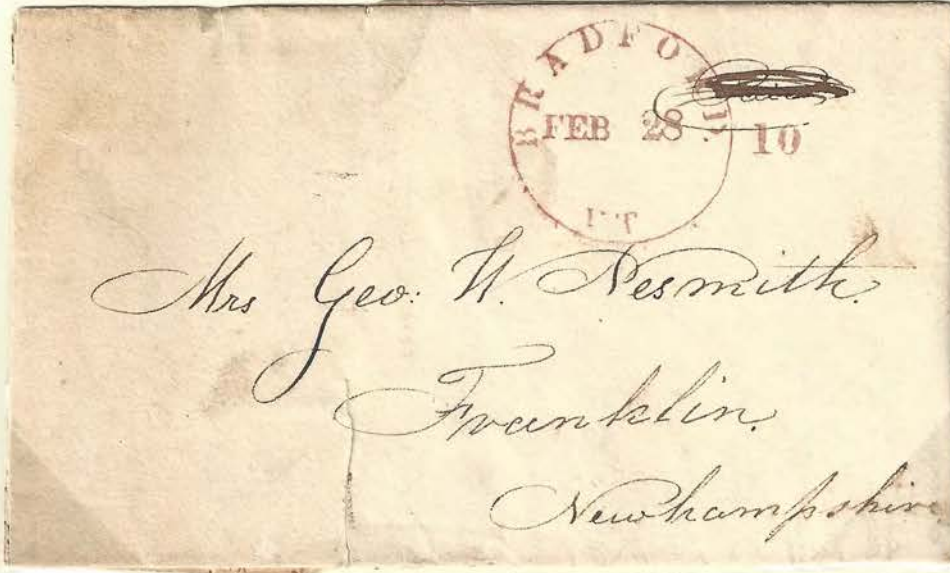 BRADFORD
FEB 28
VT
10
Mrs Geo: W. Nesmith.
Franklin.
Newhampshire